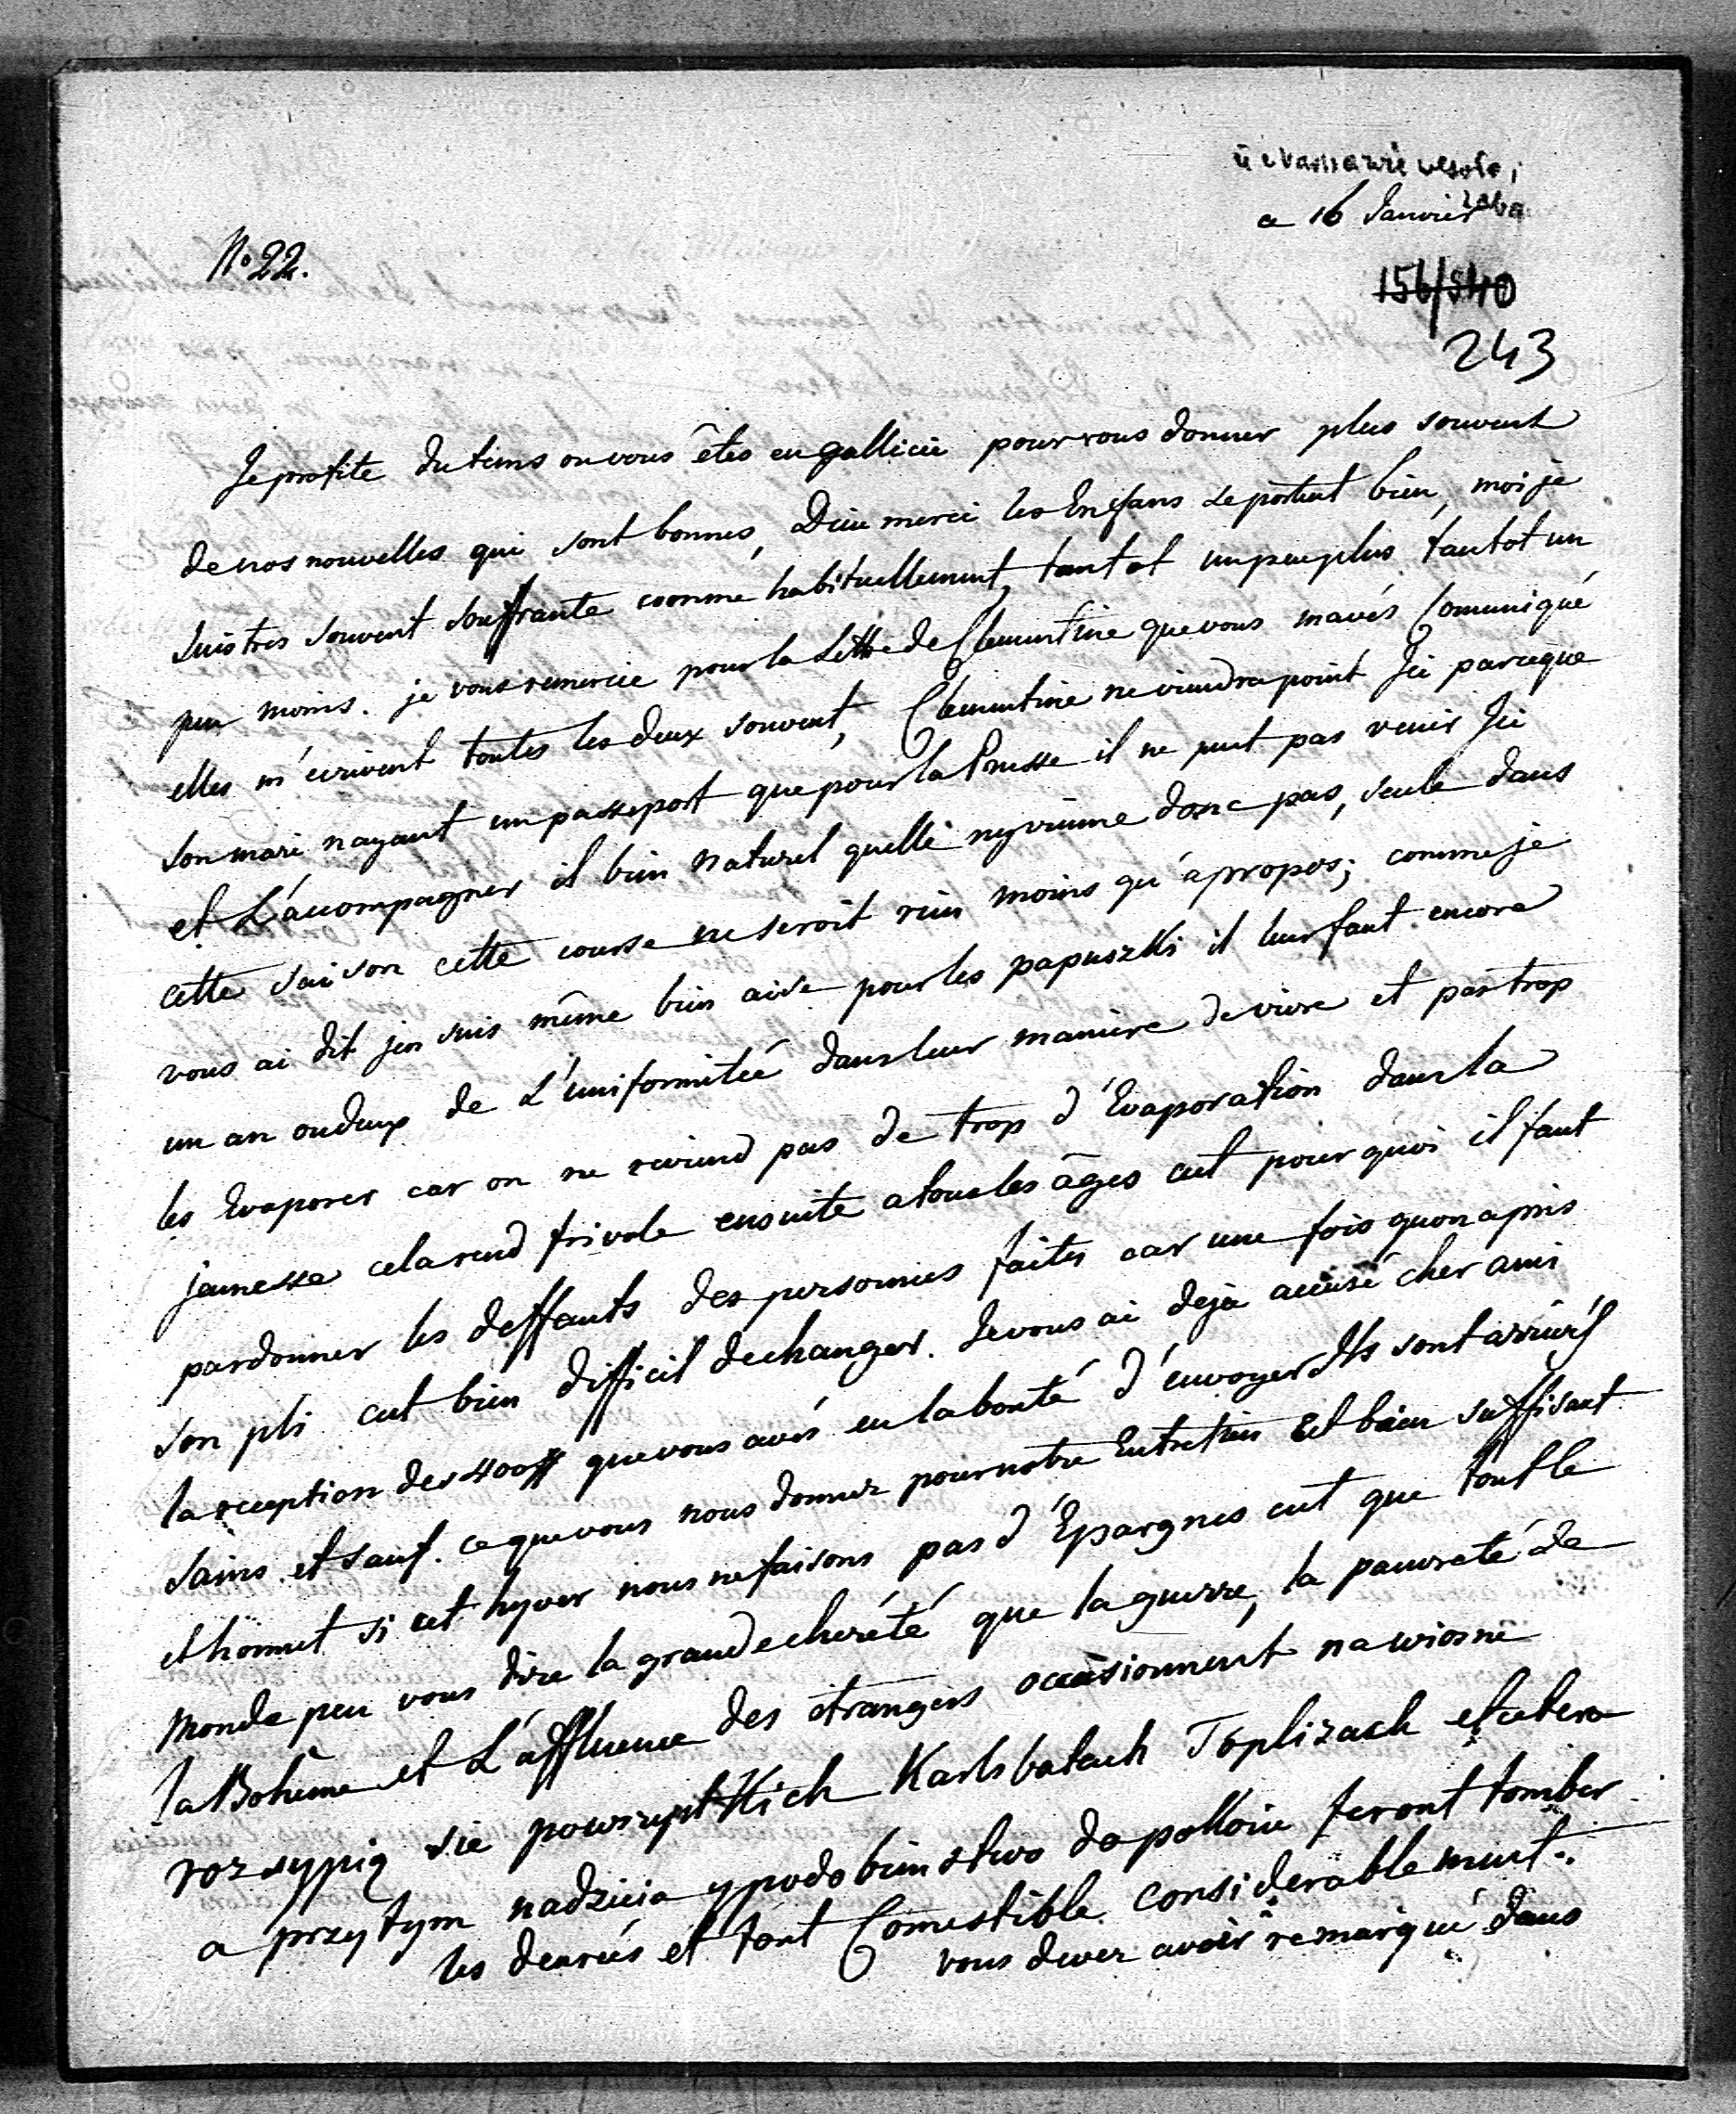 a 16 Janvier
No 22.
156/540
243
Je profite du tems ou vous êtes en gallicie pour vous donner plus souvent
de nos nouvelles qui sont bonnes, Dieu merci les Enfans se portent bien, moi je
suis tres souvent souffrante coomme habituellement, tantot un peu plus tantot un
peu moins. je vous remercie pour la Lettre de Clementine que vous mavés Comuniqué
elles m'ecrivent toutes les deux souvent, Clementine ne viendra point Ici parceque
son mari nayant un passeport que pour la Prusse il ne peut pas venir Ici
et L'accompagner il bien naturel quelle ny vienne donc pas, seule dans
cette saison cette course ne seroit rien moins qu'apropos; comme je
vous ai dit jen suis même bien aise pour les papuszki il leur faut encore
un an ou deux de L'uniformitée dans leur maniere de vivre et pas trop
les Evaporer car on ne reviend pas de trop d'Evaporation dans la
jeunesse cela rend frivole ensuite a tous les âges cest pourquoi il faut
pardonner les deffauts des personnes faites car une fois quon a pris
son pli cest bien difficil de changer. Je vous ai deja accusé cher ami
la reception des 400# que vous avés eu la bonté d'envoyer Ils sont arrivés
sains et sauf. ce que vous nous donnez pour notre Entretien est bien suffisant
et honnet si cet hyver nous ne faisons pas d'Epargnes cest que tout le
monde peu vous dire la grande cherété que la guerre, la pauvreté de
la Bohême et L'affluence des étrangers occasionnent na wiosne
rozsypią sie po wszystkich Karlsbatach Toplizach etcetera
a przytym nadzieia y podobienstwo do pokoiu feront tomber
les denrées et tout Comestible considerablement.
vous devez avoir remarqué dans